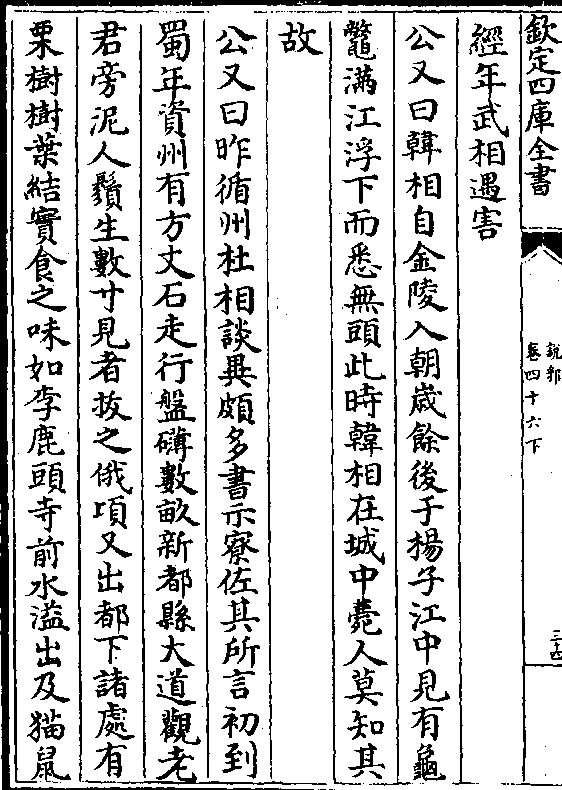 欽定四庫全書
說郛
卷四十六下
三十四
經年武相遇害
公又曰韓相自金陵入朝嵗餘後于楊子江中見有龜
鼈滿江浮下而悉無頭此時韓相在城中薨人莫知其
故
公又曰昨循州杜相談異頗多書示寮佐其所言初到
蜀年資州有方丈石走行盤礴數畝新都縣大道觀老
君旁泥人鬚生數寸見者拔之俄頃又出都下諸處有
栗樹樹葉結實食之味如李鹿頭寺前水溢出及猫鼠